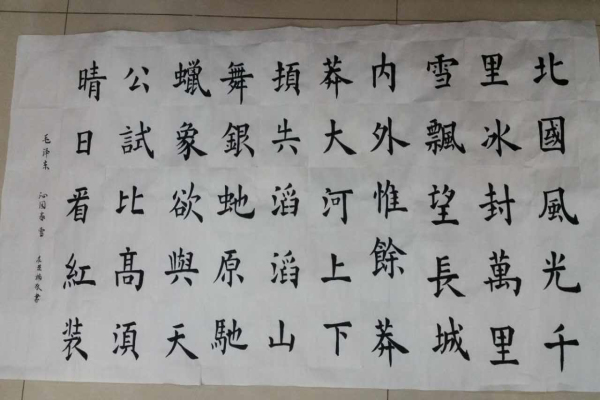 北國風光千
里冰封萬里
雪飄望長城
内外惟餘莽
莽大河上下
頓失滔滔山
舞銀蛇原馳
蠟象欲與天
公試比高須
晴日看紅装
毛泽东 沁园春雪